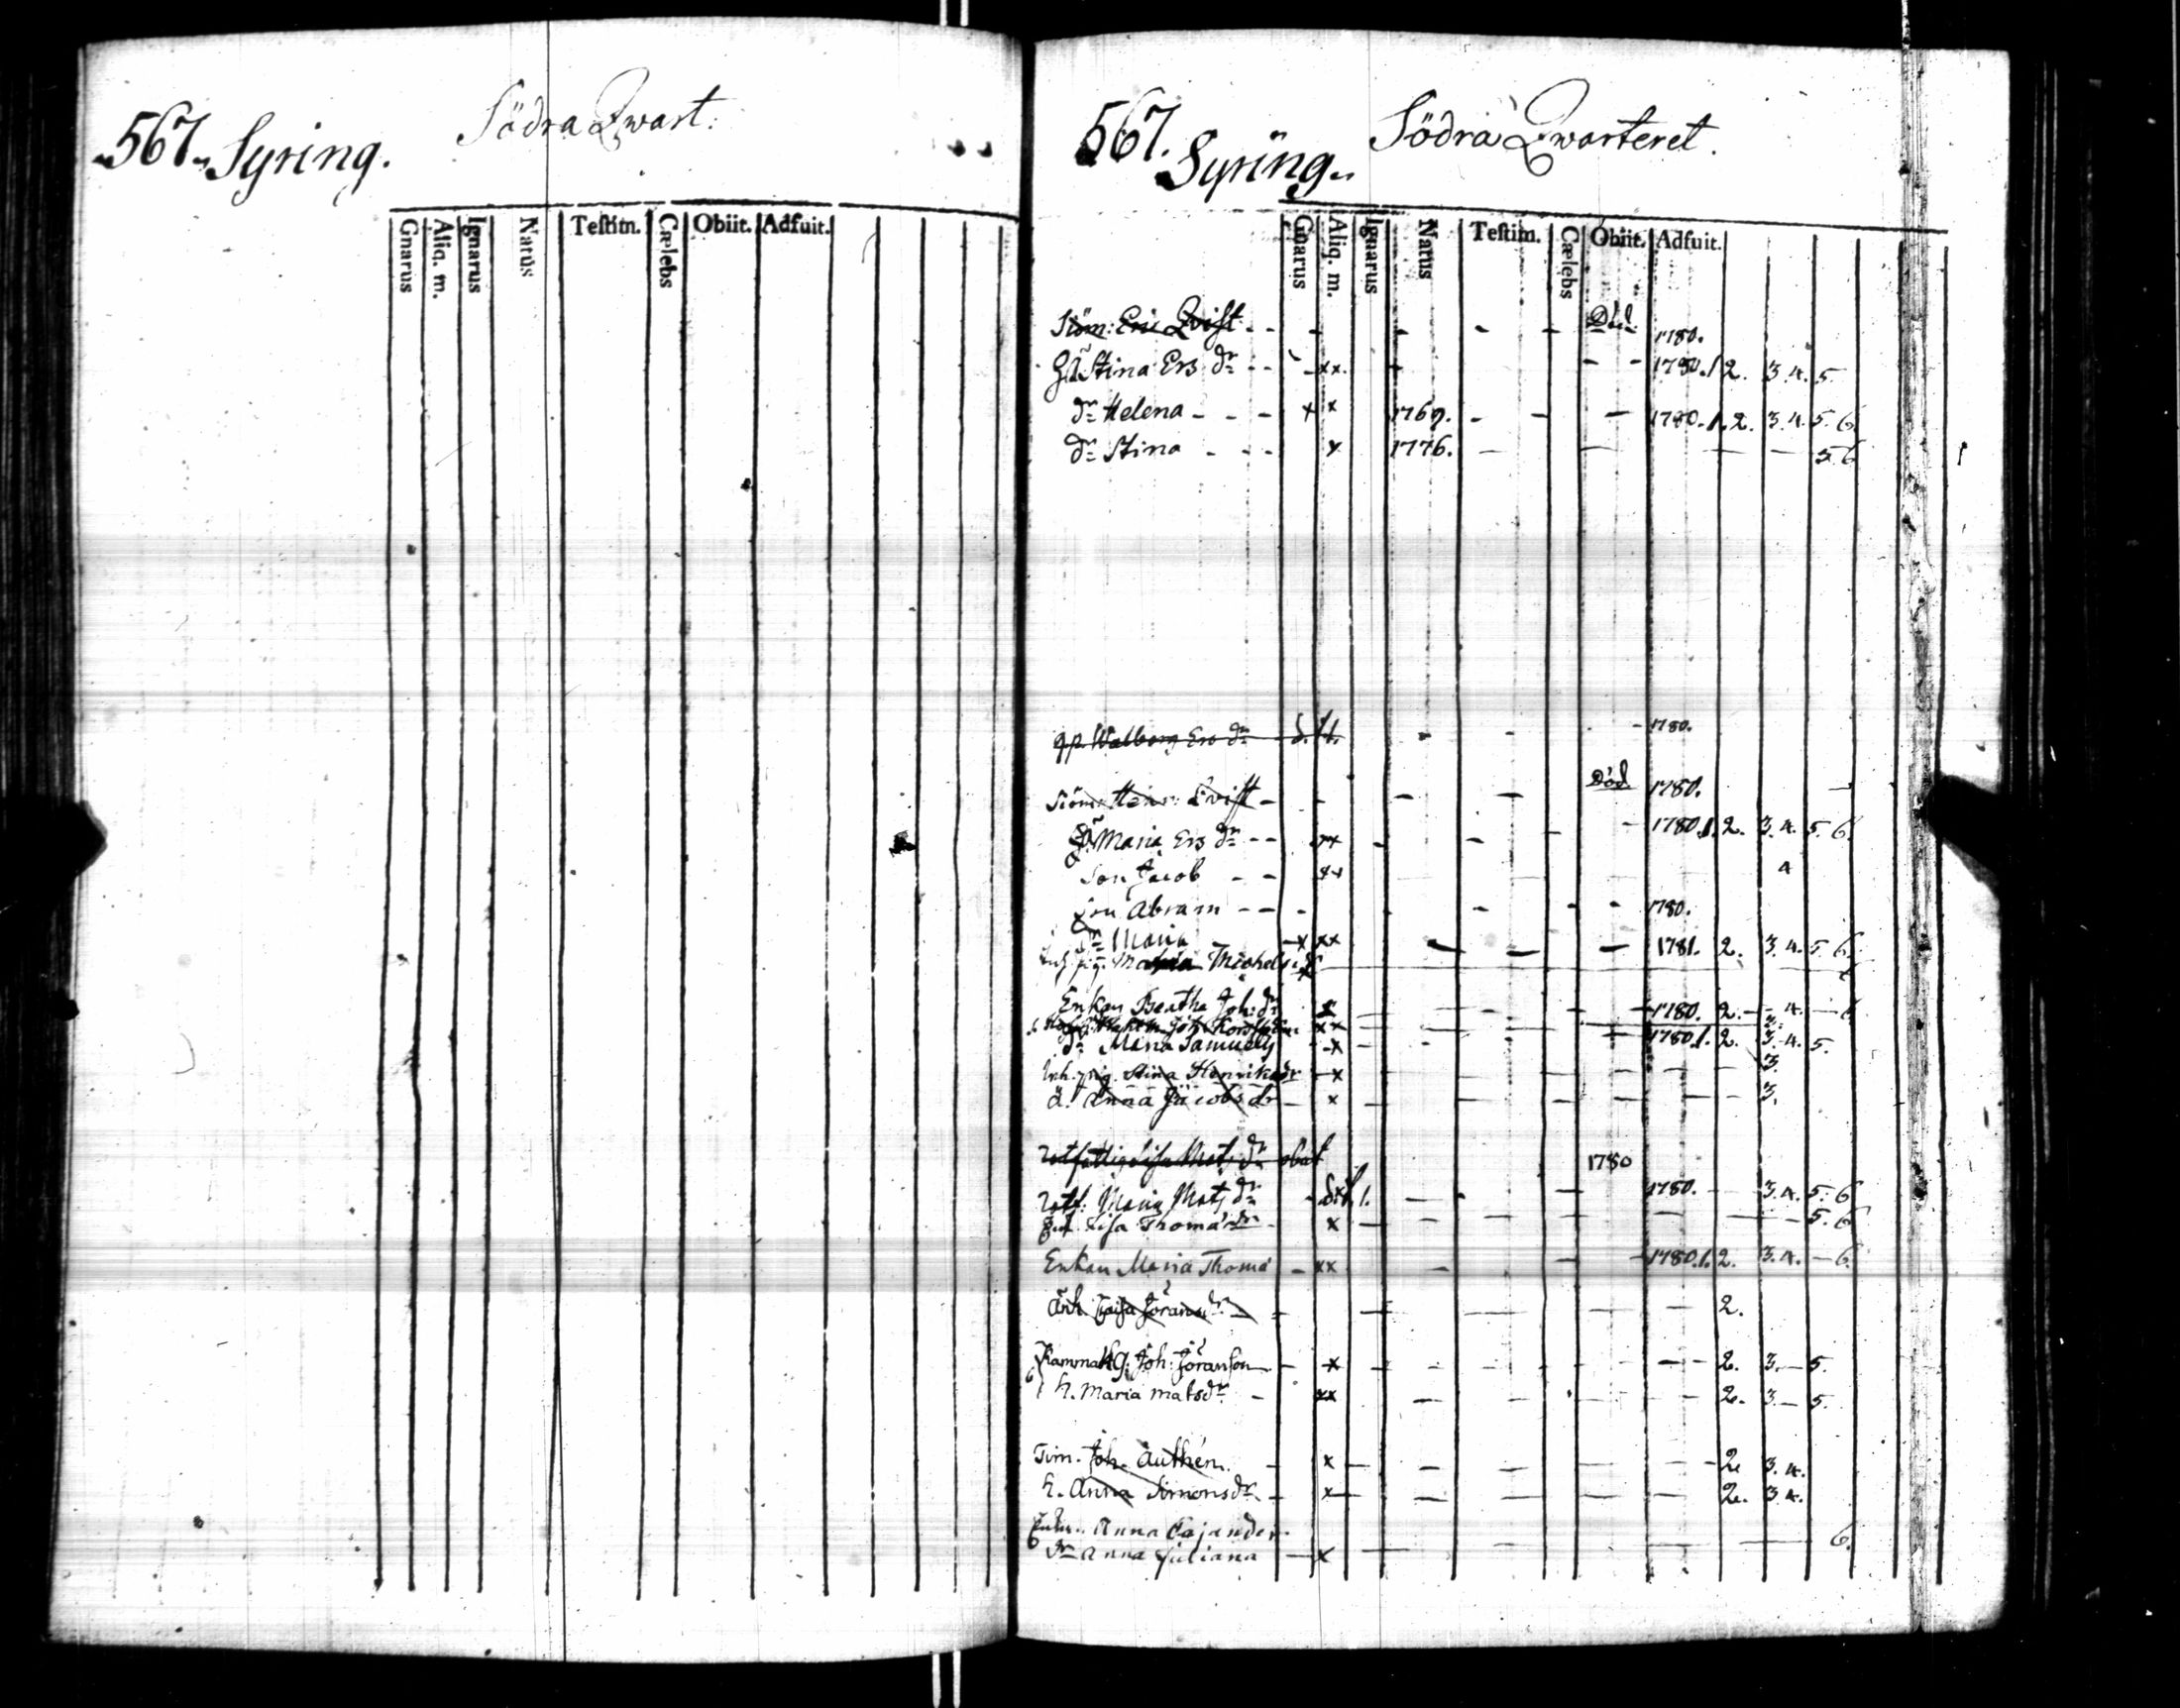 567. Syring. Södra Qwart:
Gnarus Aliq. m. Ignarus Natus Testim. Cælebs Obiit. Adfuit.
567. Syring. Södra Qwarteret.
Gnarus Aliq. m. Ignarus Natus Testim. Cælebs Obiit. Adfuit.
Siöm: Eric Qvist - - - - - - Död 1780.
Stina Ers dr - - - xx - - - 1780. 1 2. 3. 4. 5.
dr Helena - - - x x 1769. - - - 1780. 1. 2. 3. 4. 5. 6
dr Stina - - - x 1776. - - - - 5 6
Walborg Ers dr - - - 1780.
Siöm: Henr: Qvist - - - - Död 1780. -
Maria Ers dr - - xx - - - - 1780. 1. 2. 3. 4. 5. 6.
Son Jacob - - xx 4
Son Abram - - - - - - 1780.
dr Maria - x xx - - - 1781. 2. 3. 4. 5. 6
Michels dr
Enkan Beatha Joh: dr x - - - - 1780. 2. - 4. - 6
xx 3.
dr Maria Samuels - x - - - 1780. 1. 2. 3. 4. 5.
Inh. pig. Stina Henriksdr - x - - - - 3.
Anna Jacobs dr - x - - - - - 3.
Rotfattig Lisa Mats dr 1780
Rotf: Maria Mats dr - - - - 1780. - 3. 4. 5. 6
Lisa Thoma dr - x - - - - - 5. 6
Enkan Maria Thoma - xx - - - 1780. 1. 2. 3. 4. - 6.
Caisa Jörans dr - - - - - - 2.
Joh: Göranson - x - - - - - - 2. 3. - 5.
h. Maria matsdr - xx - - - - - 2. 3 - 5.
Tim. Joh. Authén. - x - - - - - 2 3. 4.
h. Anna Simonsdr. - x - - - - - 2. 3 4.
Anna Cajander
dr Anna Juliana - x - - - - - 6.